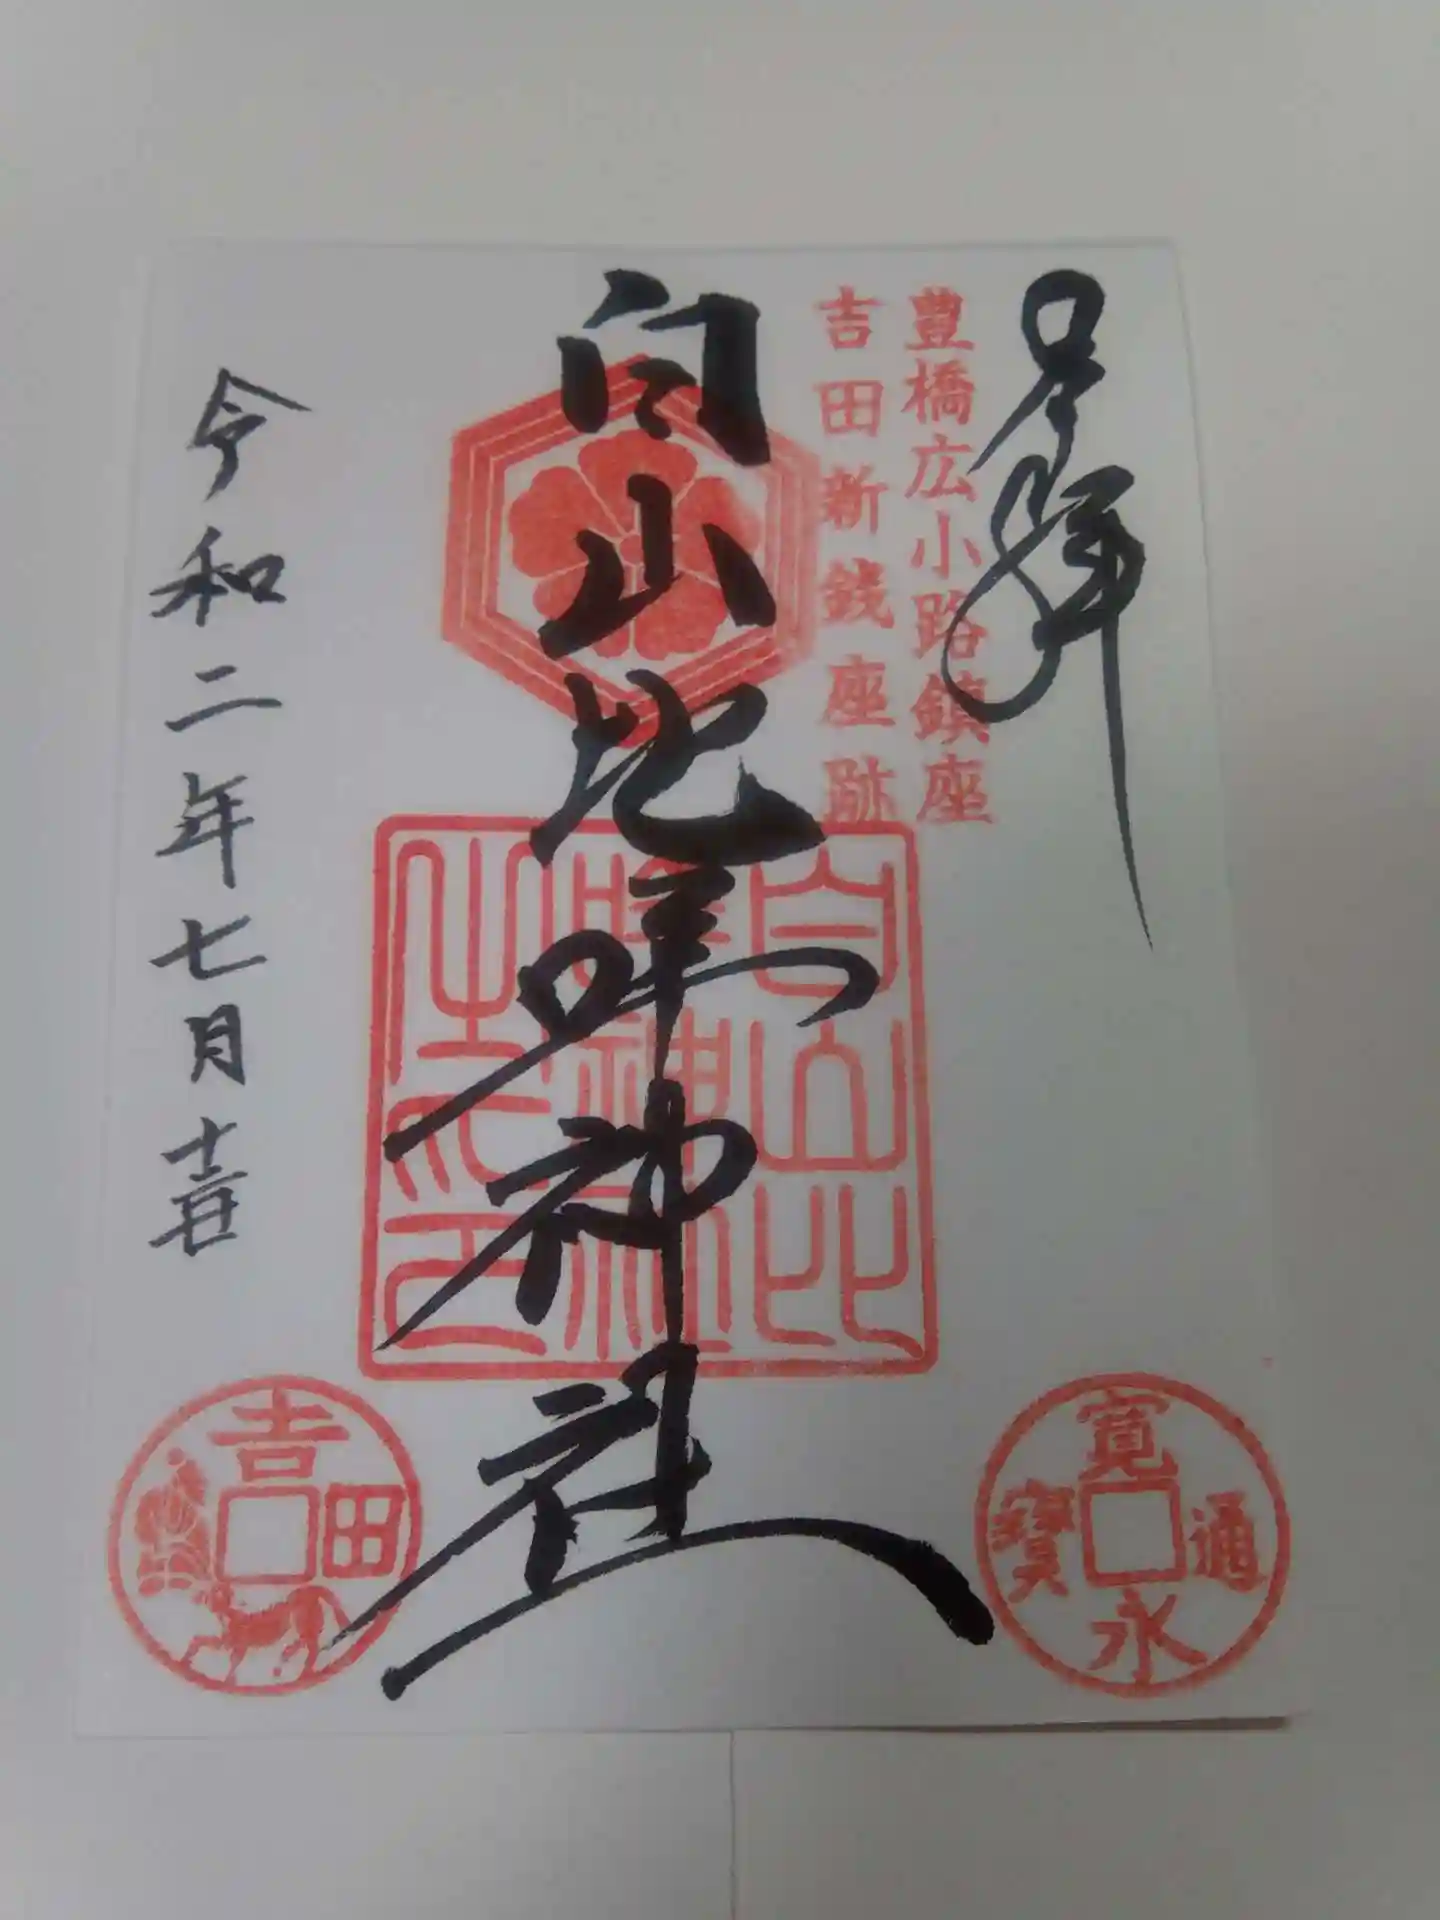 拝
豊橋広小路鎮座
吉田新銭座跡
白山比咩神社
白山比
咩神社
之印
令和二年七月十五日
寛永通寳
吉田